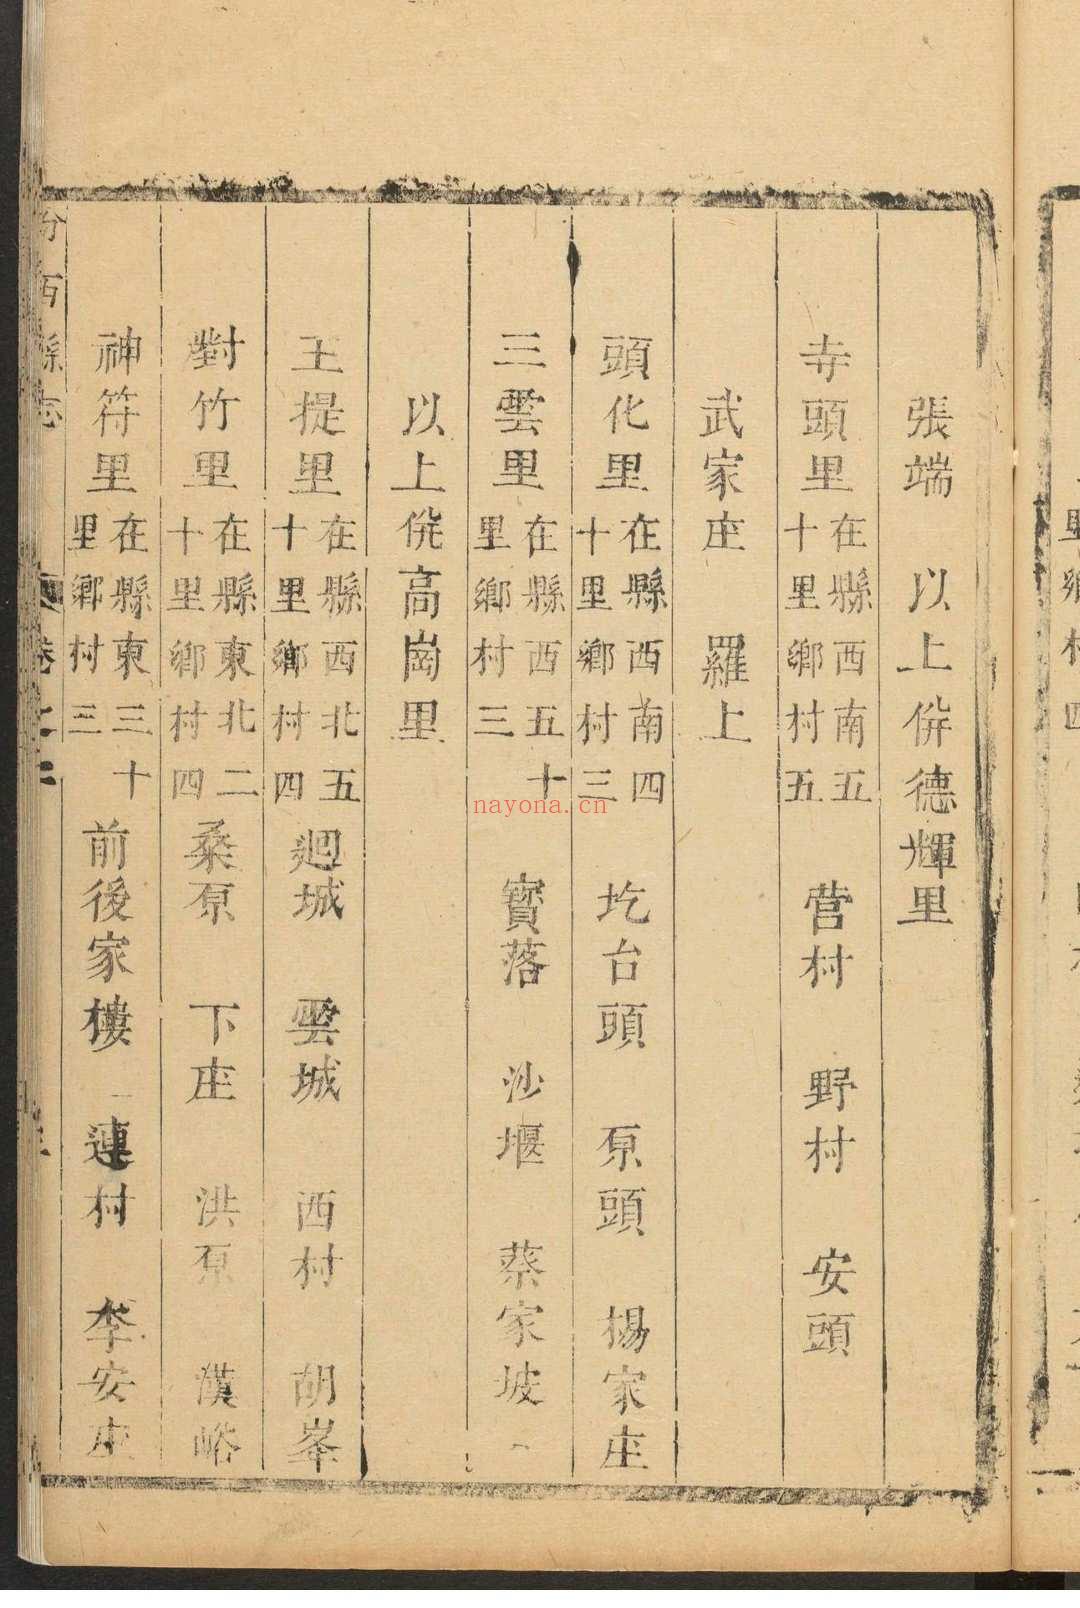 張端　以上併德輝里
寺頭里　在縣西南五十里鄉村五　营村　野村　安頭
武家庄　羅上
頭化里　在縣西南四十里鄉村三　圪台頭　原頭　楊家庄
三雲里　在縣西五十里鄉村三　寳落　沙堰　蔡家坡
以上併高崗里
王提里　在縣西北五十里鄉村四　廻城　雲城　西村　胡峯
對竹里　在縣東北二十里鄉村四　桑原　下庄　洪原　漢峪
神符里　在縣東三十里鄉村三　前後家樓　連村　李安庄
汾西縣志
卷之
nayona.cn